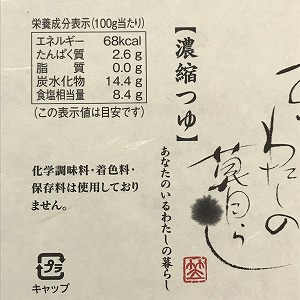 栄養成分表示(100g当たり)
エネルギー 68kcal
たんぱく質 2.6g
脂質 0.0g
炭水化物 14.4g
食塩相当量 8.4g
(この表示値は目安です)
化学調味料・着色料・
保存料は使用しており
ません。
プラ
キャップ
【濃縮つゆ】
あなたのいるわたしの暮らし
わたしの
暮らし